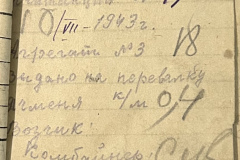 10/VII - 1943 г.
Агрегат № 3 18
выдано на перевалку
ячменя к/м 0,4
возчик
Комбайнер